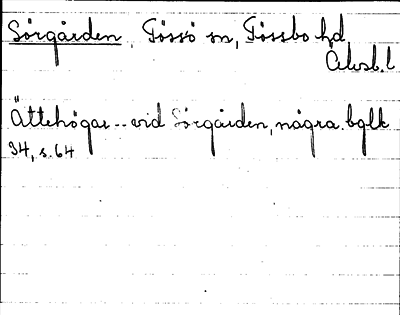 Sörgården, Tössö sn, Tössbo hd
Älvsb. l
Ättehögar -- vid Sörgården, några. bglk
94, s. 64